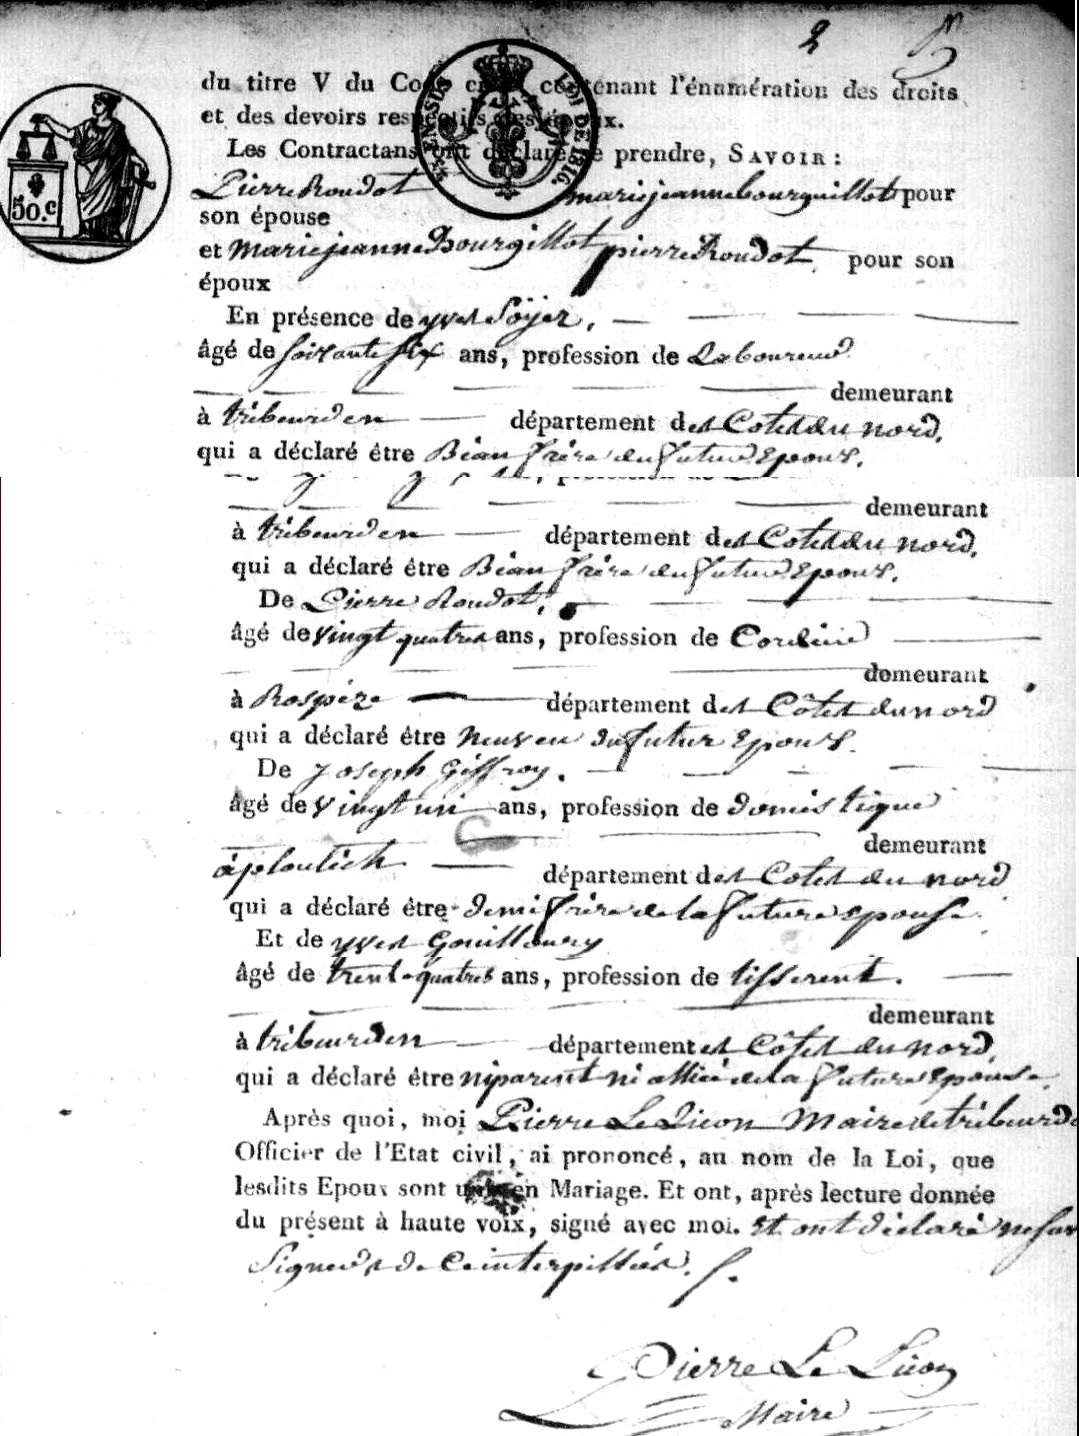 2
du titre V du Code civil contenant l'énumération des droits
et des devoirs respectifs des époux.
Les Contractans ont déclaré se prendre, SAVOIR :
Pierre Roudot mariejeanne bourguillot pour
son épouse
et mariejeanne Bourgillot pierre Roudot pour son
époux
50.c
EN SUS
LOI DE 1816.
En présence de yves Soyer.
âgé de soixante six ans, profession de Laboureur
demeurant
à tribeurden département des Cotes du nord.
qui a déclaré être Beau frère du futur Epoux.
demeurant
à tribeurden département des Cotes du nord.
qui a déclaré être Beau frère du futur Epoux.
De Pierre Roudot.
âgé de vingt quatres ans, profession de
demeurant
à Rospéze département des Côtes du nord
qui a déclaré être neuveu du futur Epoux.
De Joseph Giffroy.
âgé de vingt un ans, profession de domestique
demeurant
à ploulech département des Cotes du nord
qui a déclaré être demi frère de la future epouse.
Et de yves Gouilloury
âgé de trente quatres ans, profession de tisserent.
demeurant
à tribeurden département es Côtes du nord.
qui a déclaré être ni parent ni allié de la future Epouse.
Après quoi, moi Pierre Le Luon Maire de tribeurde
Officier de l'Etat civil, ai prononcé, au nom de la Loi, que
lesdits Epoux sont unis en Mariage. Et ont, après lecture donnée
du présent à haute voix, signé avec moi. et ont déclaré ne sav
Signer de ce interpellés.
Pierre Le Luon
Maire